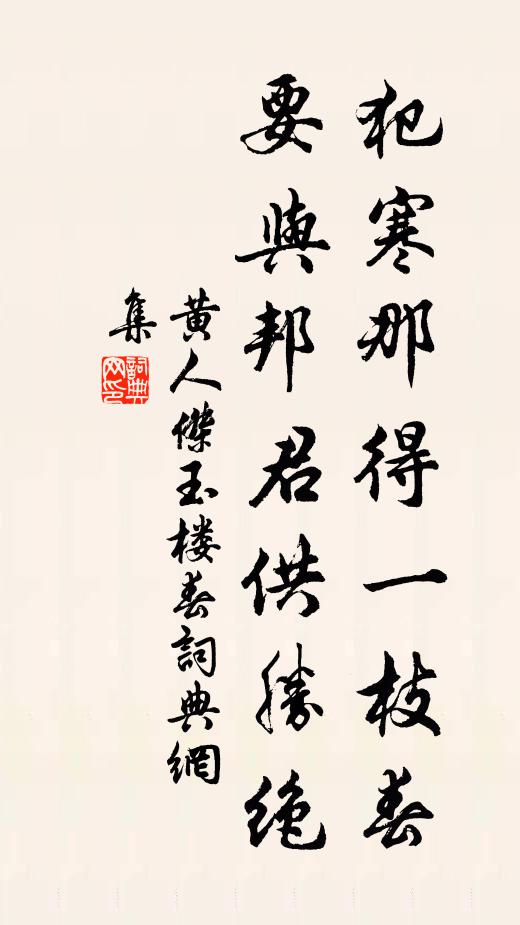 犯寒那得一枝春
要與邦君供勝絶
黄人傑玉楼春詞典網
集
詞典网印